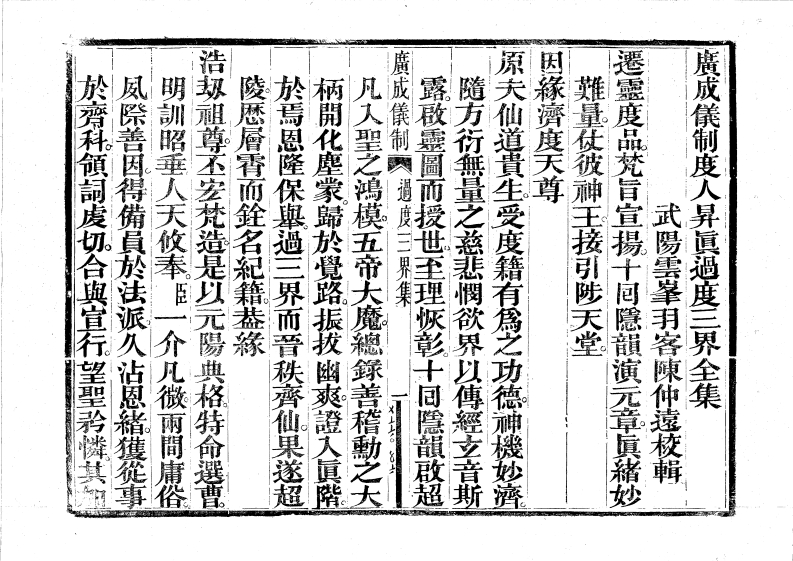 廣成儀制度人昇眞過度三界全集
武陽雲峯玥客陳仲遠校輯
遷靈度品梵旨宣揚十囘隱韻演元章眞緒妙
難量仗彼神王接引陟天堂
因緣濟度天尊
原夫仙道貴生受度籍有爲之功德神機妙濟
隨方衍無量之慈悲憫欲界以傳經玄音斯
露啟靈圖而授世至理恢彰十囘隱韻啟超
凡入聖之鴻模五帝大魔總錄善稽勳之大
柄開化塵蒙歸於覺路振拔幽爽證入眞階
於焉恩隆保舉過三界而晉秩齊仙果遂超
陵歴層霄而銓名紀籍葢緣
浩刼祖尊丕宏梵造是以元陽典格特命選曹
明訓昭垂人天攸奉臣一介凡微兩間庸俗
夙際善因得備員於法派久沾恩緒獲從事
於齋科領詞虔切合與宣行望聖矜憐其
廣成儀制 過度三界集 一